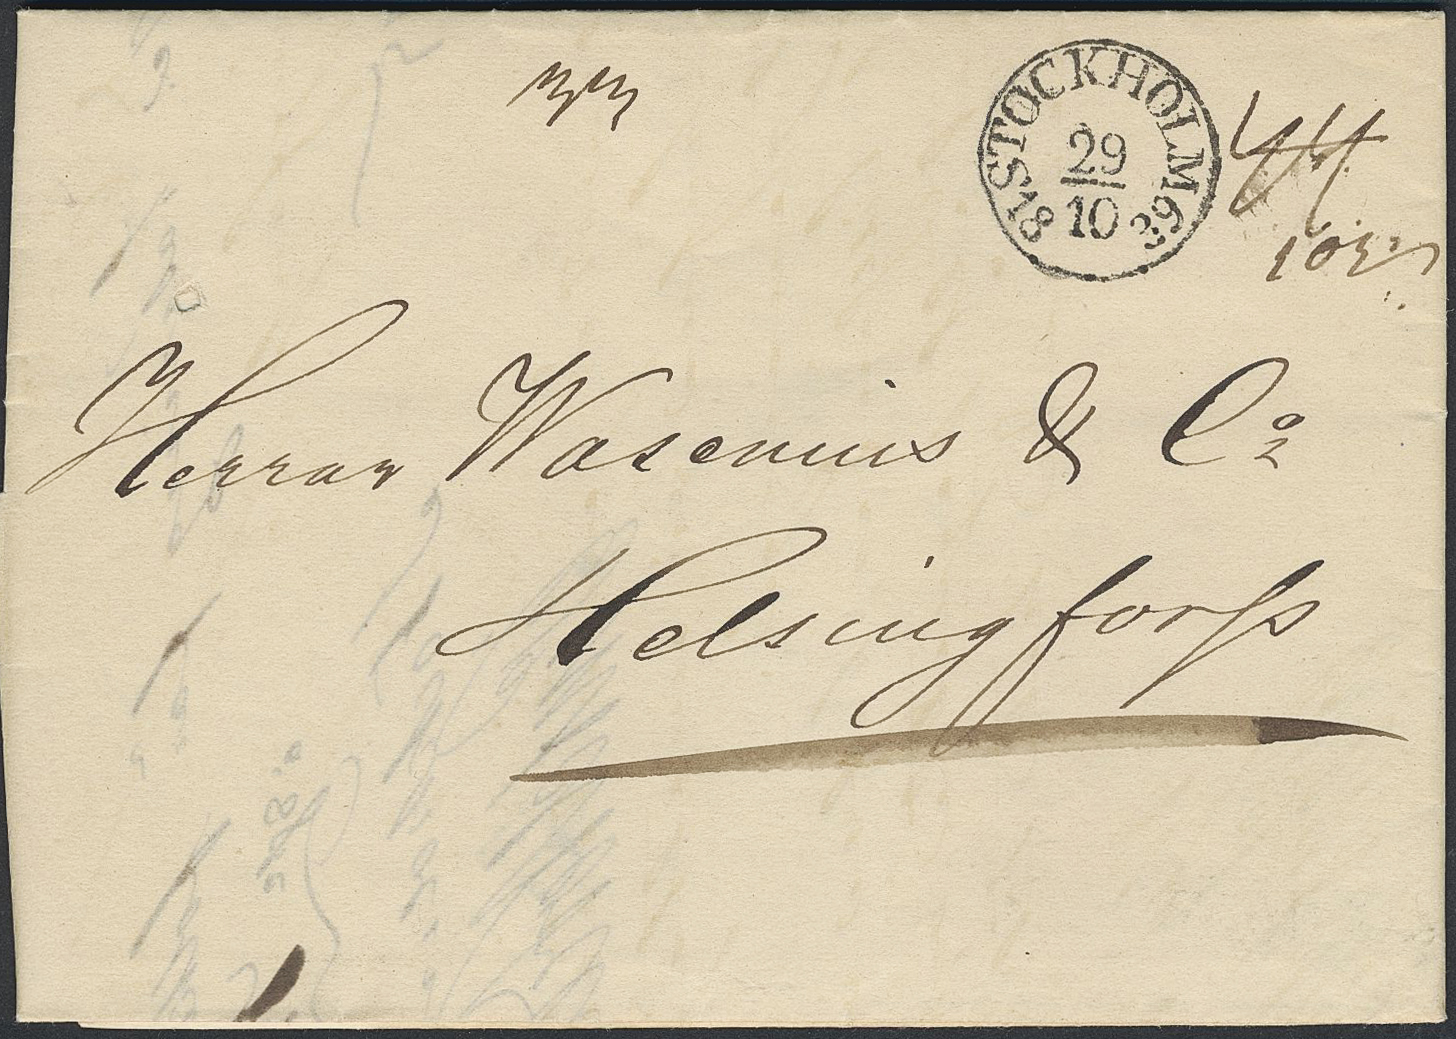 33
STOCKHOLM
29
10
18 39
Herrar Wasenius & Co
Helsingforss